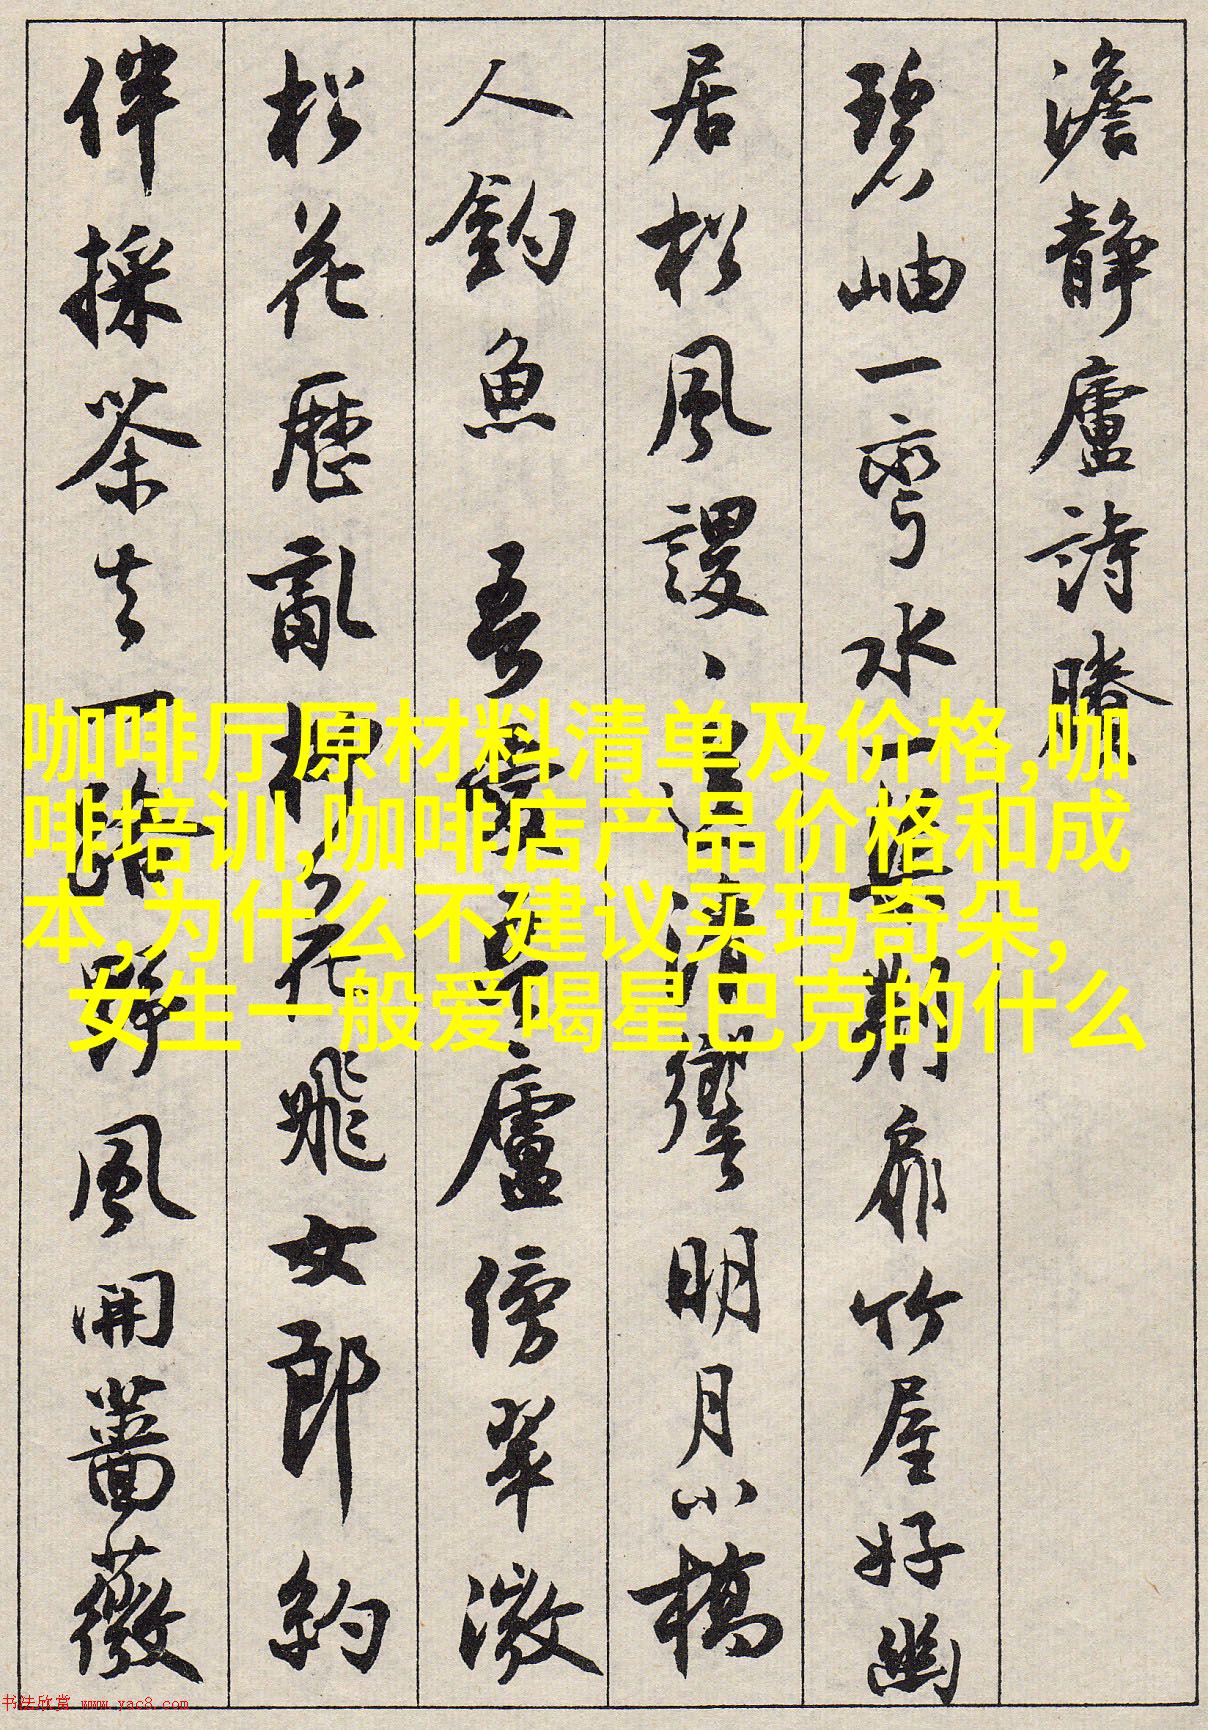 澹靜廬詩賸
碧岫一彎水荊扉竹屋好幽
居松風謖、清響明月小橋
人釣魚 吾愛吾廬傍翠微
松花歷亂柳花飛女郎約
伴採茶去一路野風開薔薇
咖啡厅原材料清单及价格,咖
啡培训,咖啡店产品价格和成
本,为什么不建议买玛奇朵,
女生一般爱喝星巴克的什么
书法欣赏 www.yac8.com